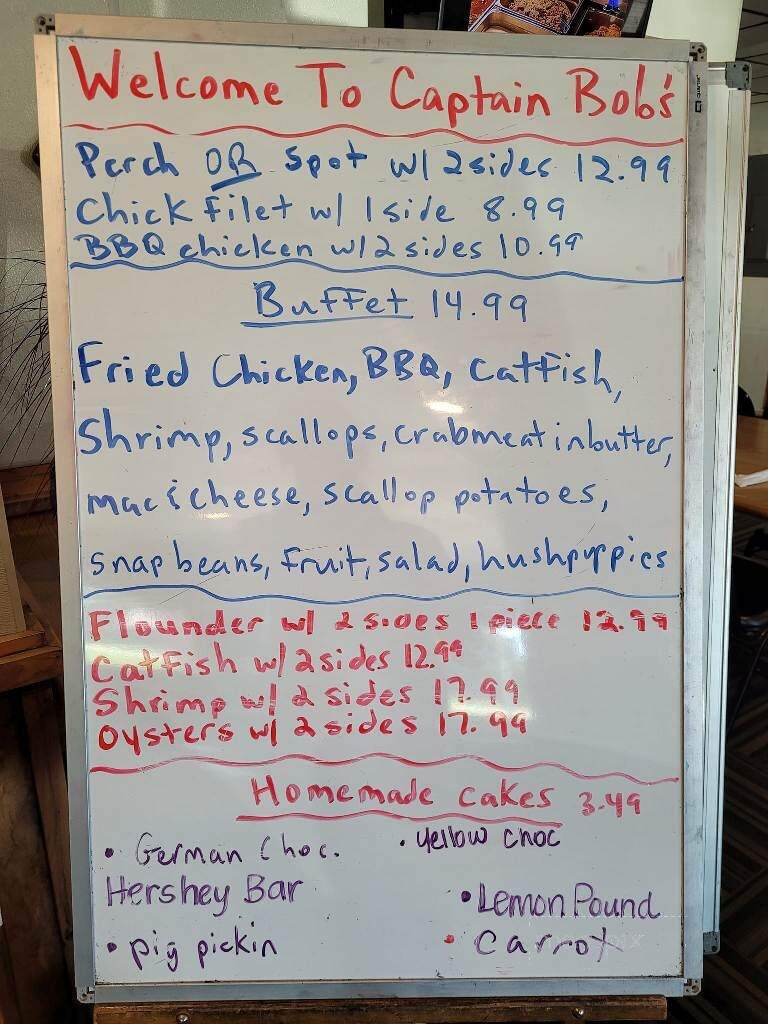 Welcome To Captain Bob's
Perch OR Spot w/ 2 sides 12.99
Chick filet w/ 1 side 8.99
BBQ chicken w/ 2 sides 10.99
Buffet 14.99
Fried Chicken, BBQ, Catfish,
Shrimp, scallops, crabmeat in butter,
mac & cheese, scallop potatoes,
snap beans, fruit, salad, hushpuppies
Flounder w/ 2 sides 1 piece 12.99
Catfish w/ 2 sides 12.99
Shrimp w/ 2 sides 17.99
Oysters w/ 2 sides 17.99
Homemade cakes 3.49
• German Choc. • Yellow choc
Hershey Bar • Lemon Pound
• pig pickin • Carrot